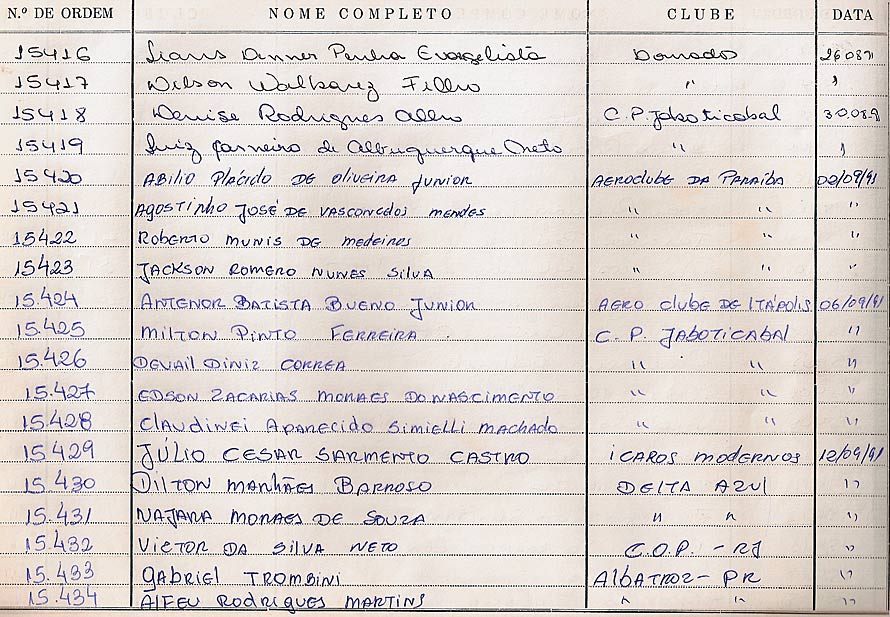 N.º DE ORDEM NOME COMPLETO CLUBE DATA
15416 Penha Evangelista Dourados
15417 Wilson Filho "
15418 Denise Rodrigues C.P. Jaboticabal
15419 Luiz Carneiro de Albuquerque Neto " "
15420 ABILIO PLÁCIDO DE OLIVEIRA JUNIOR AEROCLUBE DA PARAÍBA 02/09/91
15421 AGOSTINHO JOSÉ DE VASCONCELOS MENDES " " "
15422 ROBERTO MUNIS DE MEDEIROS " " "
15423 JACKSON ROMERO NUNES SILVA " " "
15.424 ANTENOR BATISTA BUENO JUNIOR AERO CLUBE DE ITÁPOLIS 06/09/91
15.425 MILTON PINTO FERREIRA C.P. JABOTICABAL "
15.426 DEVAIL DINIZ CORREA " " "
15.427 EDSON ZACARIAS MORAES DO NASCIMENTO " " "
15.428 CLAUDINEI APARECIDO SIMIELLI MACHADO " " "
15.429 JÚLIO CESAR SARMENTO CASTRO ICAROS MODERNOS 12/09/91
15.430 DILTON MANHÃES BARROSO DELTA AZUL "
15.431 NAJARA MORAES DE SOUZA " " "
15.432 VICTOR DA SILVA NETO C.O.P. - RJ "
15.433 GABRIEL TROMBINI ALBATROZ - PR "
15.434 ALFEU RODRIGUES MARTINS " " "